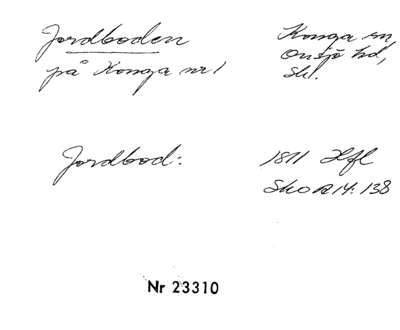 Jordboden
på Konga nr 1
Konga sn,
Onsjö hd,
Sk l.
Jordbod:
1811 Hfl
Sko R 14:138
Nr 23310